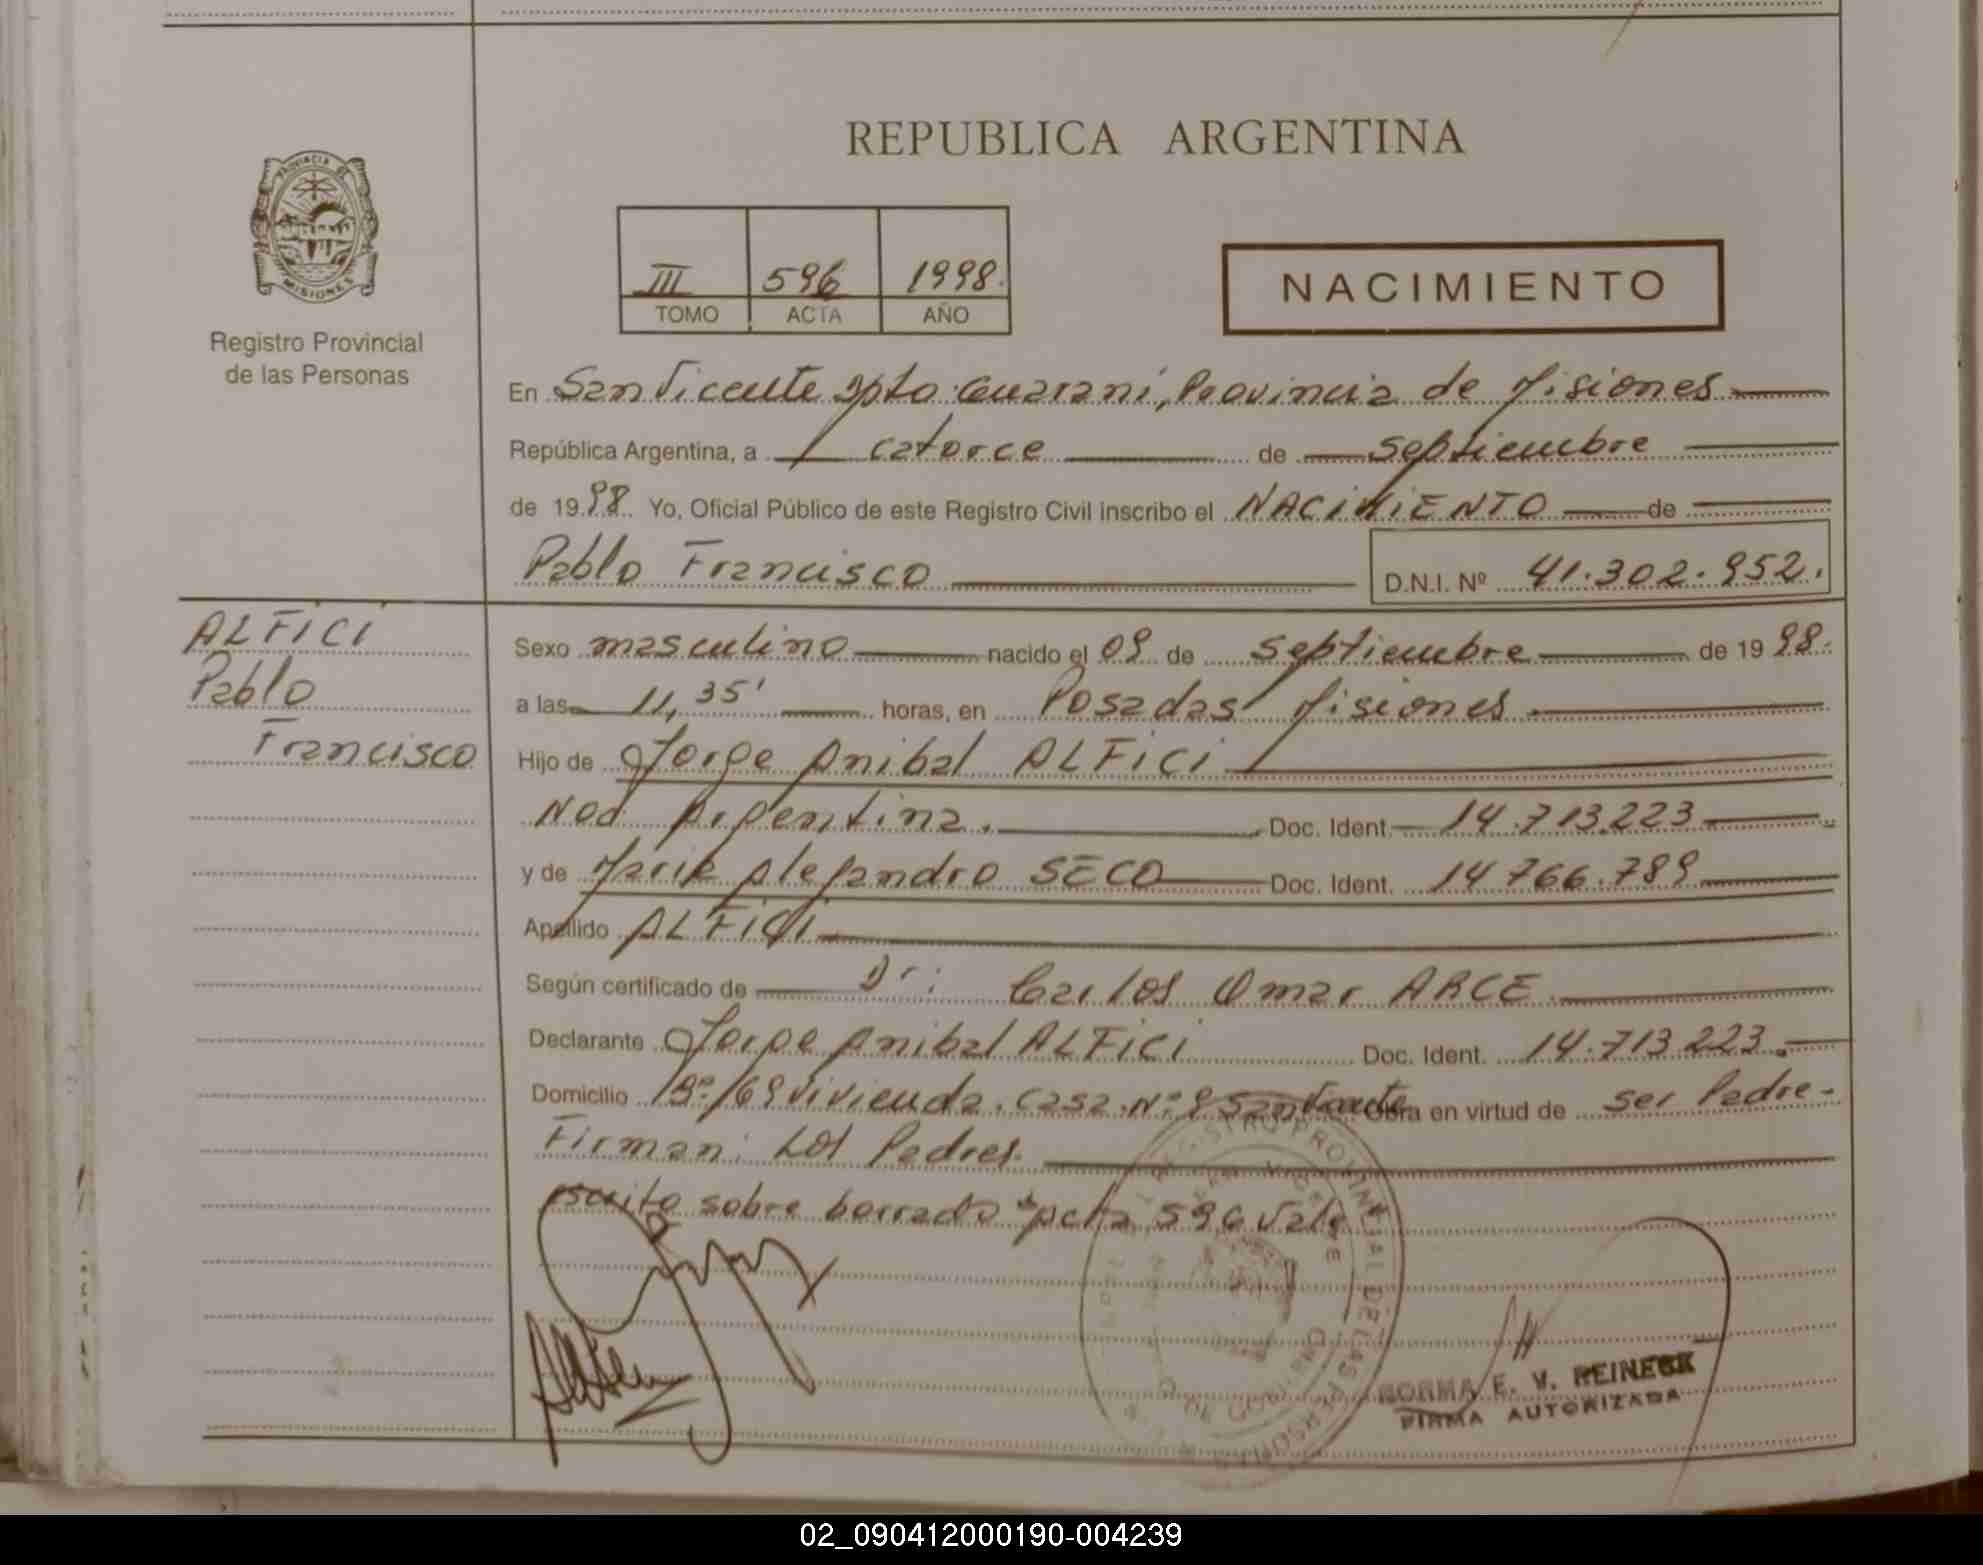 REPUBLICA ARGENTINA
PROVINCIA DE
MISIONES
Registro Provincial
de las Personas
III 596 1998.
TOMO ACTA AÑO
NACIMIENTO
En San Vicente Dpto. Guaraní, Provincia de Misiones
República Argentina, a catorce de septiembre
de 1998. Yo, Oficial Público de este Registro Civil inscribo el NACIMIENTO de
Pablo Francisco D.N.I. Nº 41.302.952.
ALFICI
Pablo
Francisco
Sexo masculino nacido el 09 de septiembre de 1998.
a las 11,35' horas, en Posadas Misiones
Hijo de Jorge Anibal ALFICI
Nod Argentina. Doc. Ident. 14.713.223
y de María Alejandro SECO Doc. Ident. 14 766.789
Apellido ALFICI
Según certificado de Dr: Carlos Omar ARCE
Declarante Jorge Anibal ALFICI Doc. Ident. 14.713 223.
Domicilio Bº/69 vivienda. casa. Nº 9 San Vicente Obra en virtud de ser Padre-
Firman: Los Padres.
escrito sobre borrado "acta 596 Vale
NORMA E. V. REINECK
FIRMA AUTORIZADA
02_090412000190-004239